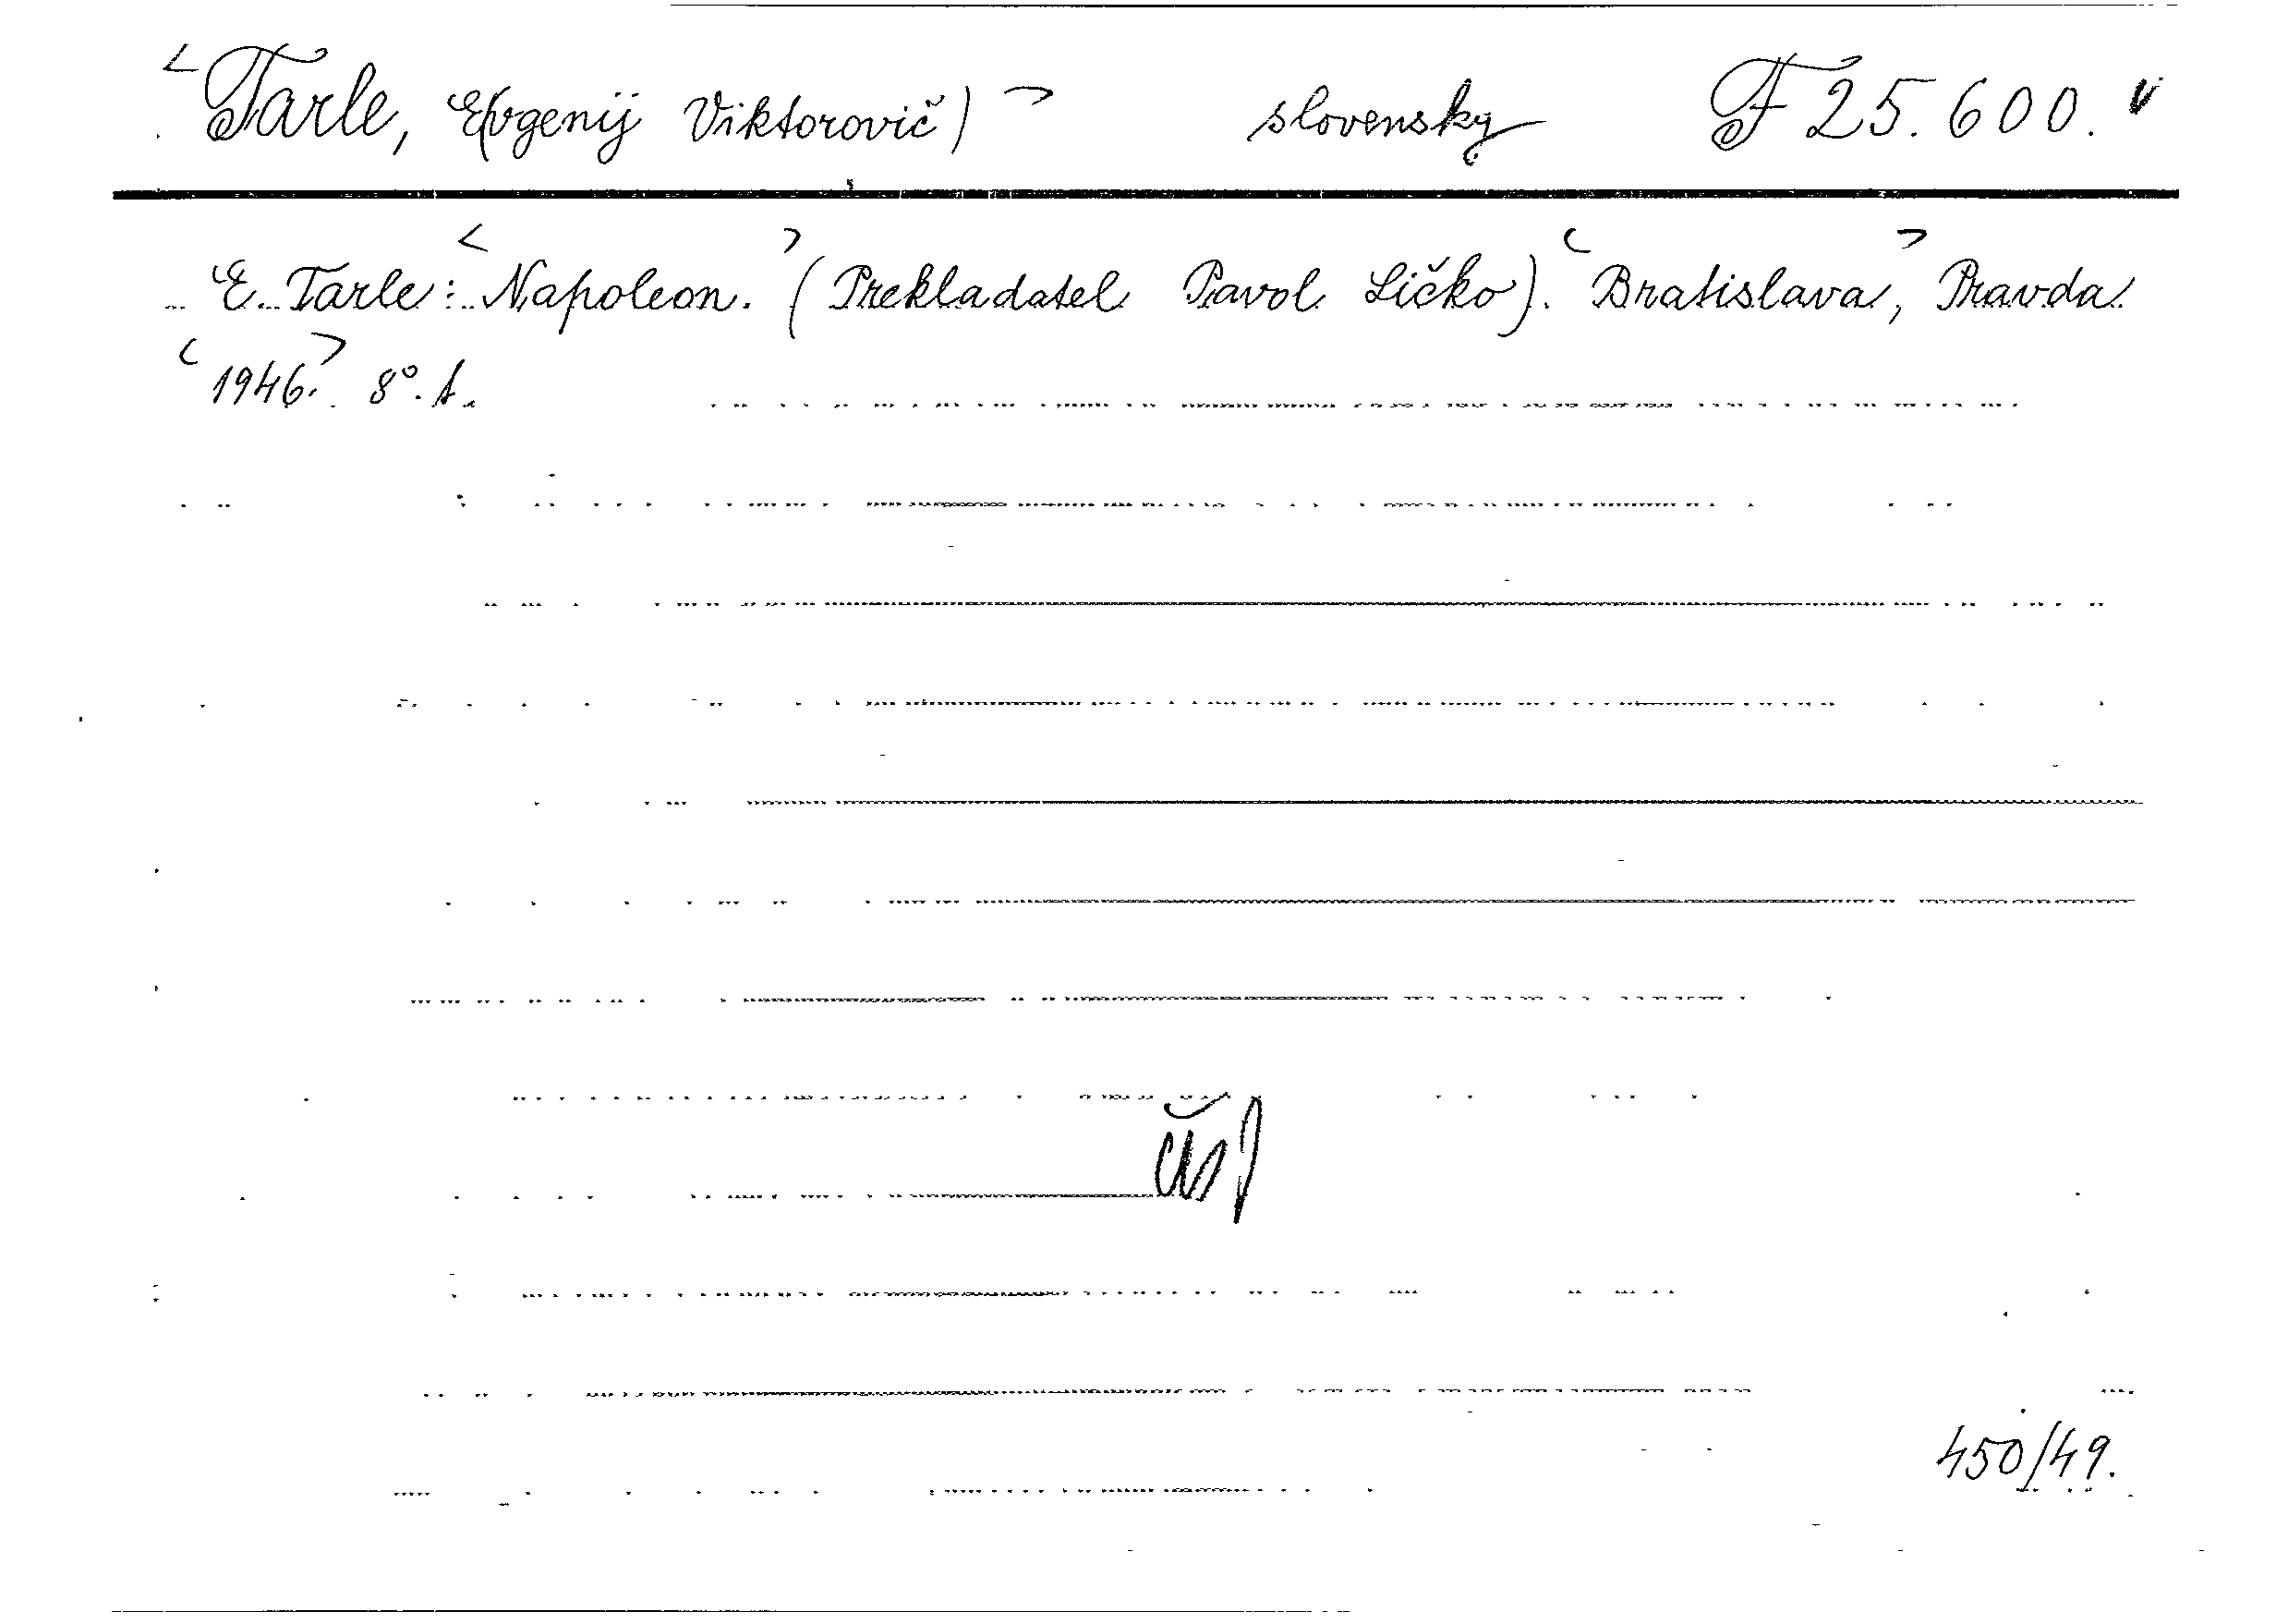 <Tarle, E(vgenij Viktorovič)> slovensky F 25.600.
E. Tarle: <Napoleon.> (Prekladatel Pavol Ličko). <Bratislava>, Pravda
<1946.> 8°. s.
450/49.